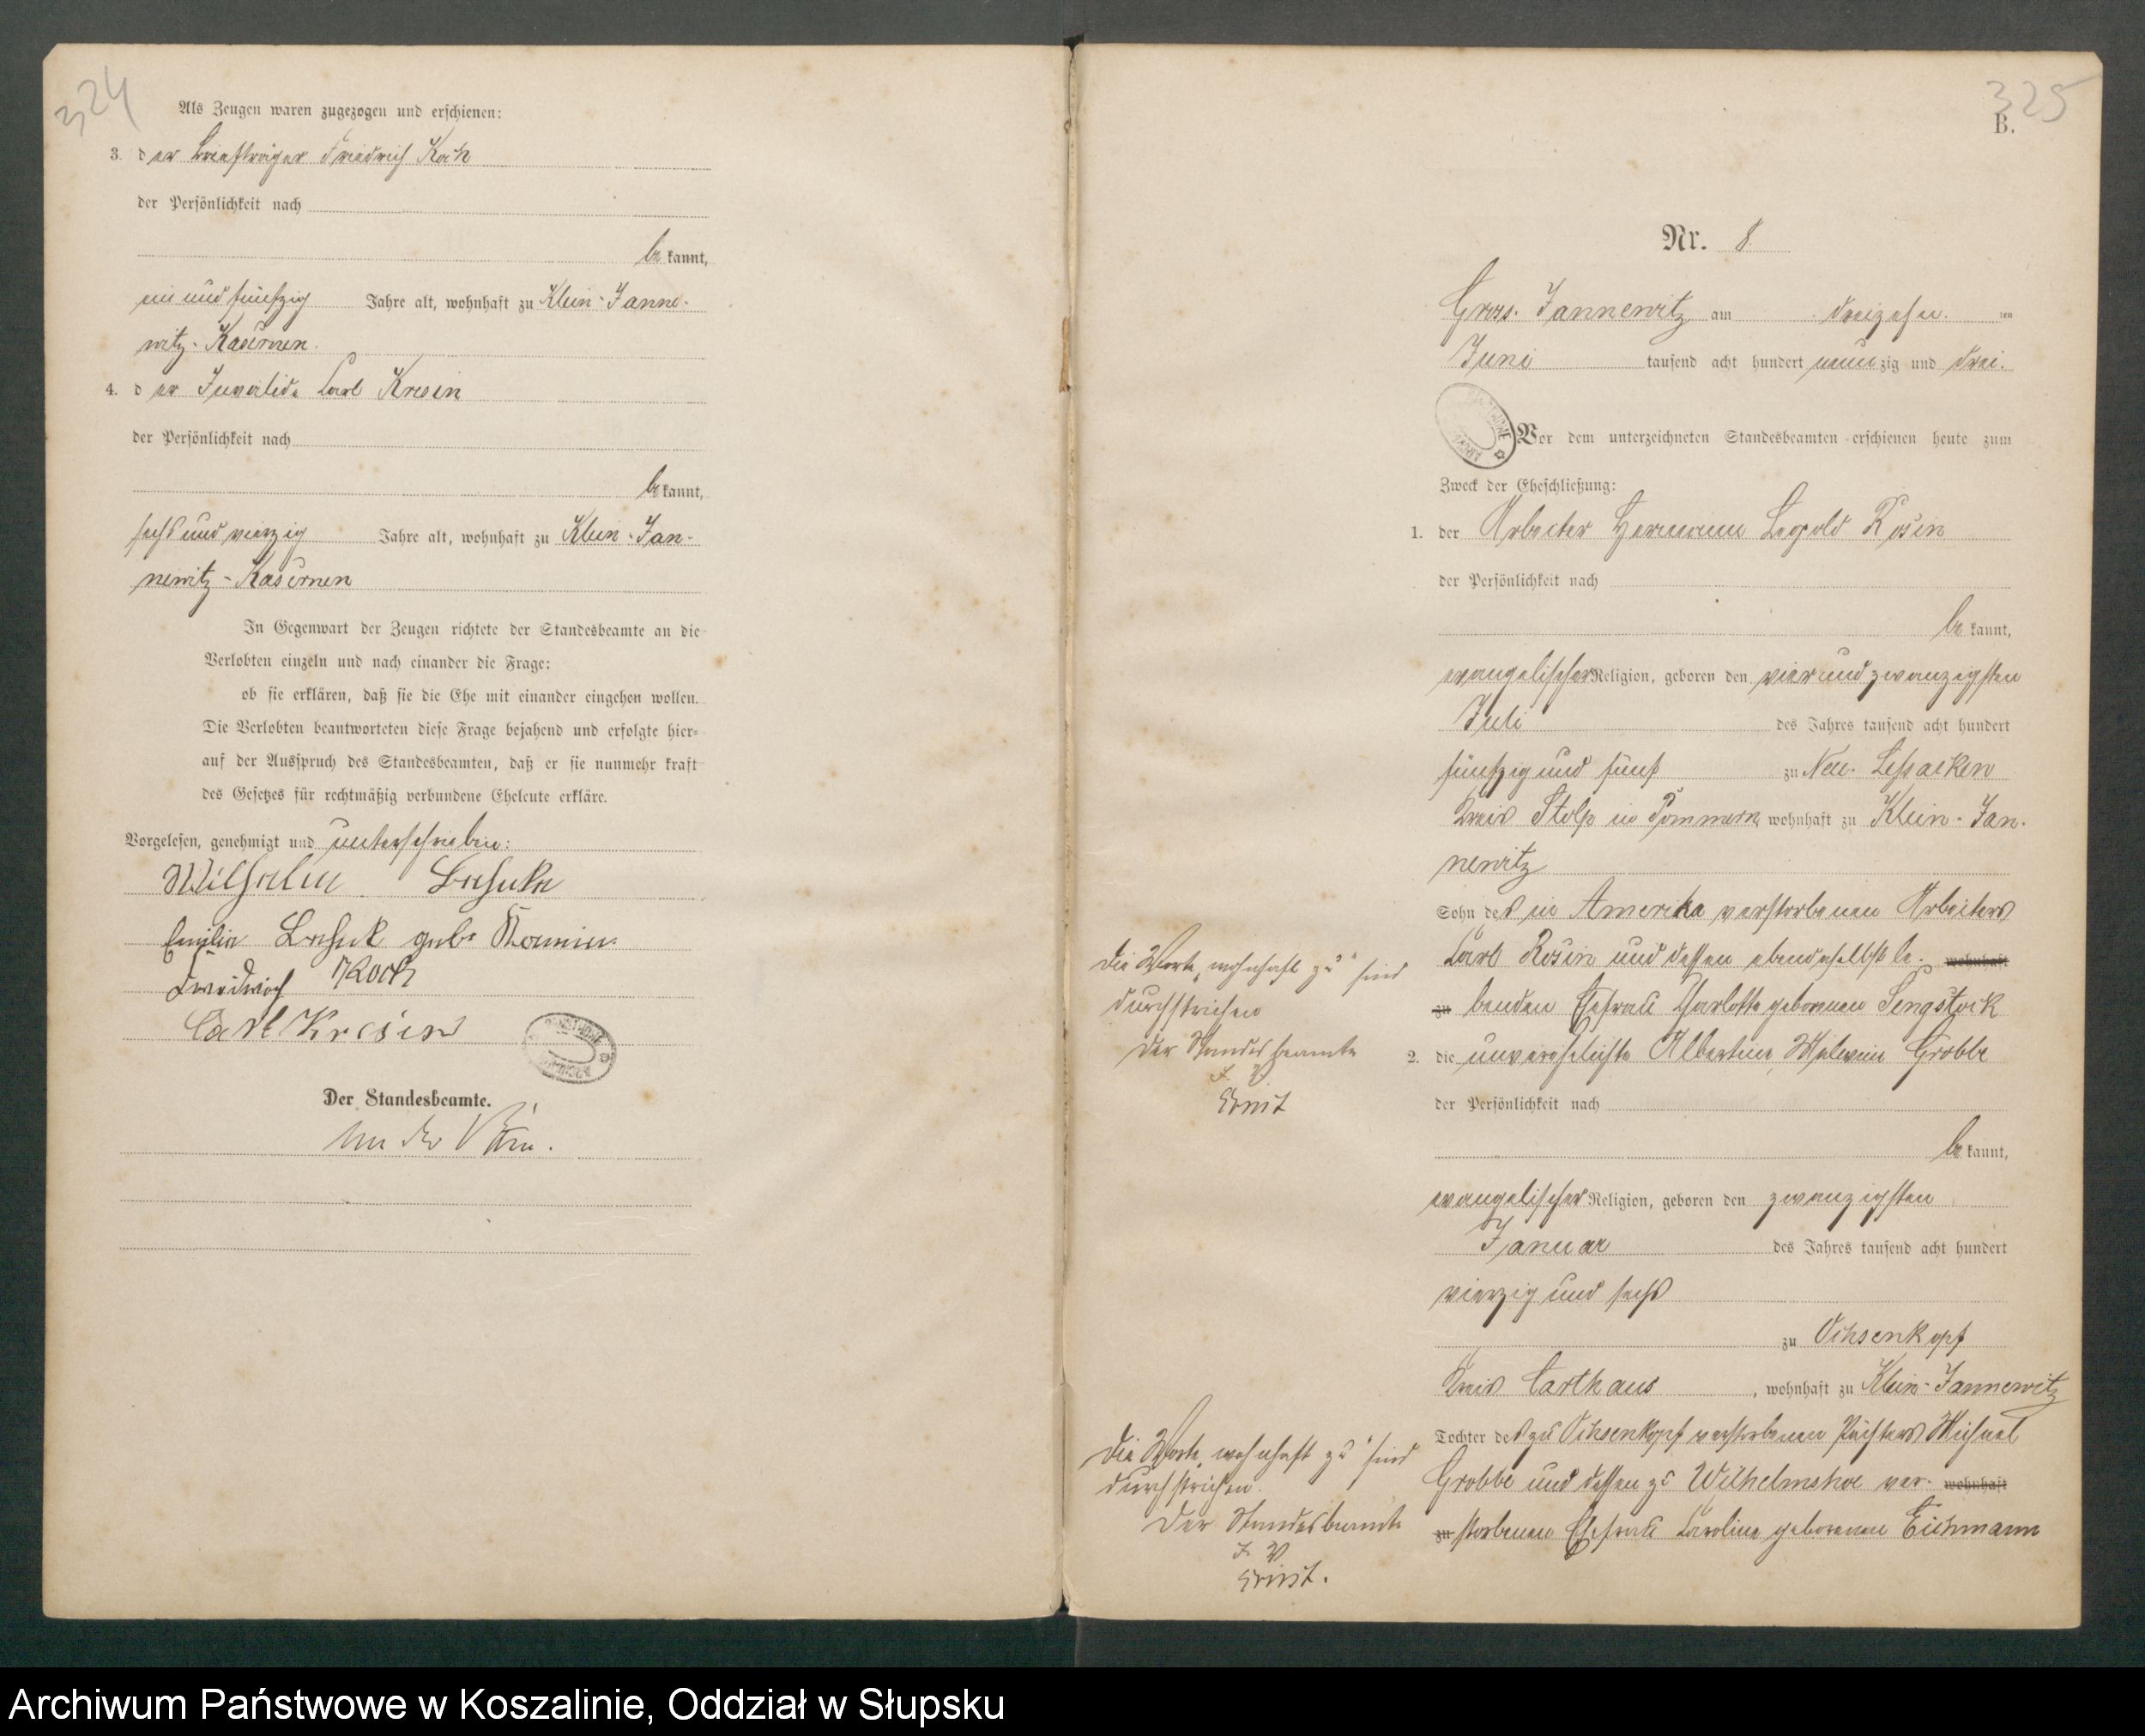 324
Als Zeugen waren zugezogen und erschienen:
3. der Briefträger Friedrich Koch
der Persönlichkeit nach
bekannt,
ein und fünfzig Jahre alt, wohnhaft zu Klein-Janne-
witz-Kasernen.
4. der Invalide Carl Kresin
der Persönlichkeit nach
bekannt,
sechs und vierzig Jahre alt, wohnhaft zu Klein-Jan-
newitz-Kasernen
In Gegenwart der Zeugen richtete der Standesbeamte an die
Verlobten einzeln und nach einander die Frage:
ob sie erklären, daß sie die Ehe mit einander eingehen wollen.
Die Verlobten beantworteten diese Frage bejahend und erfolgte hier-
auf der Ausspruch des Standesbeamten, daß er sie nunmehr kraft
des Gesetzes für rechtmäßig verbundene Eheleute erkläre.
Vorgelesen, genehmigt und unterschrieben:
Wilhelm
Emilie geb.
Friedrich Koch
Carl Kresin
Der Standesbeamte.
325
B.
Nr. 8
Gross-Jannewitz am dreizehn ten
Juni tausend acht hundert neunzig und drei.
Vor dem unterzeichneten Standesbeamten erschienen heute zum
Zweck der Eheschließung:
1. der Arbeiter Hermann Leopold Rosin
der Persönlichkeit nach
bekannt,
evangelischer Religion, geboren den vier und zwanzigsten
Juli des Jahres tausend acht hundert
fünfzig und fünf zu Neu-Lessacken
Kreis Stolp in Pommern, wohnhaft zu Klein-Jan-
newitz
Sohn des in Amerika verstorbenen Arbeiters
Carl Rosin und dessen ebendaselbst le- wohnhaft
zu benden Ehefrau Charlotte geborenen Sengstock
2. die unverehelichte Albertine Malwine Grobbe
der Persönlichkeit nach
bekannt,
evangelischer Religion, geboren den zwanzigsten
Januar des Jahres tausend acht hundert
vierzig und sechs
zu Ochsenkopf
Kreis Carthaus, wohnhaft zu Klein-Jannewitz
Tochter des zu Ochsenkopf verstorbenen Pächters Michael
Grobbe und dessen zu Wilhelmshoe ver- wohnhaft
zu storbenen Ehefrau Caroline geborenen Eichmann
Die Worte „wohnhaft zu“ sind
durchstrichen
Der Standesbeamte
J. V.
Ernst
Die Worte „wohnhaft zu“ sind
durchstrichen.
Der Standesbeamte
J. V.
Ernst.
Archiwum Państwowe w Koszalinie, Oddział w Słupsku